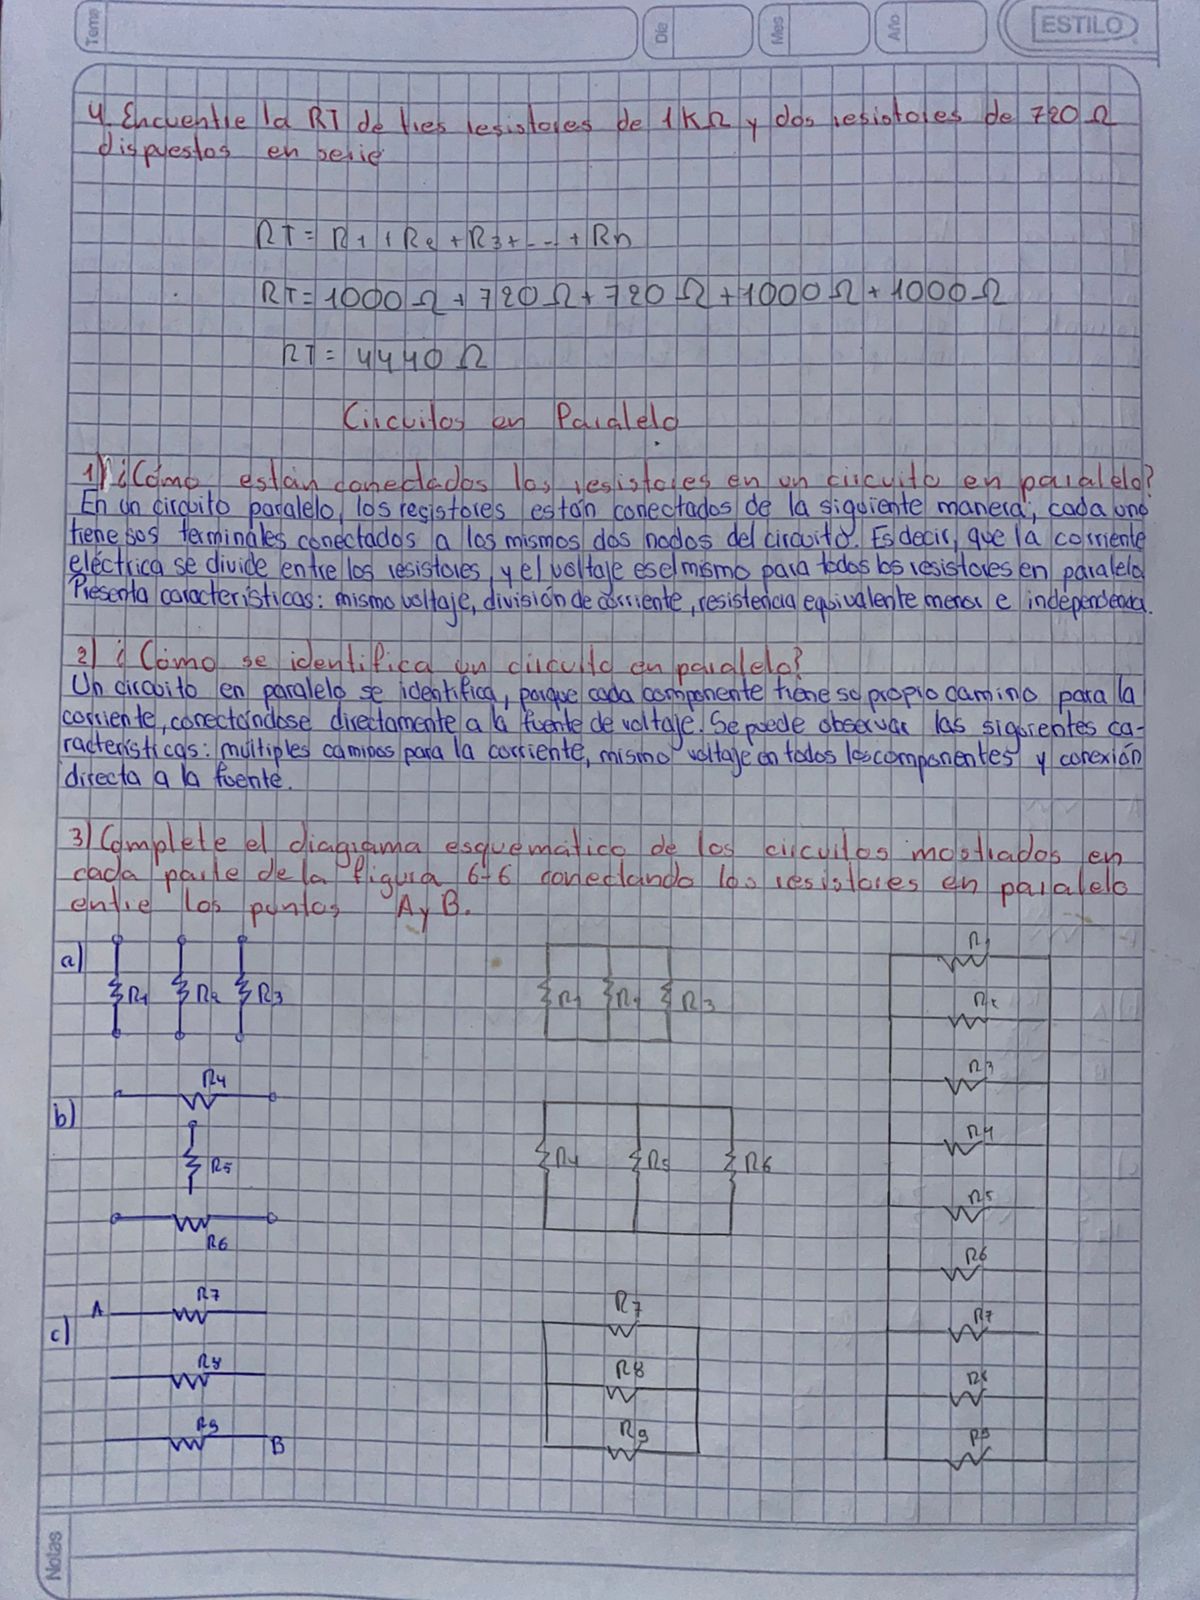 Tema
Día
Mes
Año
ESTILO
4. Encuentre la RT de tres resistores de 1KΩ y dos resistores de 720 Ω
dispuestos en serie
RT = R1 + R2 + R3 + --- + Rn
RT = 1000 Ω + 720 Ω + 720 Ω + 1000 Ω + 1000 Ω
RT = 4440 Ω
Circuitos en Paralelo
1) ¿Cómo están conectados los resistores en un circuito en paralelo?
En un circuito paralelo, los resistores están conectados de la siguiente manera, cada uno
tiene sus terminales conectados a los mismos dos nodos del circuito. Es decir, que la corriente
eléctrica se divide entre los resistores, y el voltaje es el mismo para todos los resistores en paralelo
Presenta características: mismo voltaje, división de corriente, resistencia equivalente menor e independencia.
2) ¿Cómo se identifica un circuito en paralelo?
Un circuito en paralelo se identifica, porque cada componente tiene su propio camino para la
corriente, conectándose directamente a la fuente de voltaje. Se puede observar las siguientes ca-
racterísticas: múltiples caminos para la corriente, mismo voltaje en todos los componentes y conexión
directa a la fuente.
3) Complete el diagrama esquemático de los circuitos mostrados en
cada parte de la figura 6-6 conectando los resistores en paralelo
entre los puntos A y B.
a) R1 R2 R3
R1 R2 R3
b) R4
R5
R6
R4 R5 R6
c) A R7
R8
R9 B
R7
R8
R9
R1
R2
R3
R4
R5
R6
R7
R8
R9
Notas